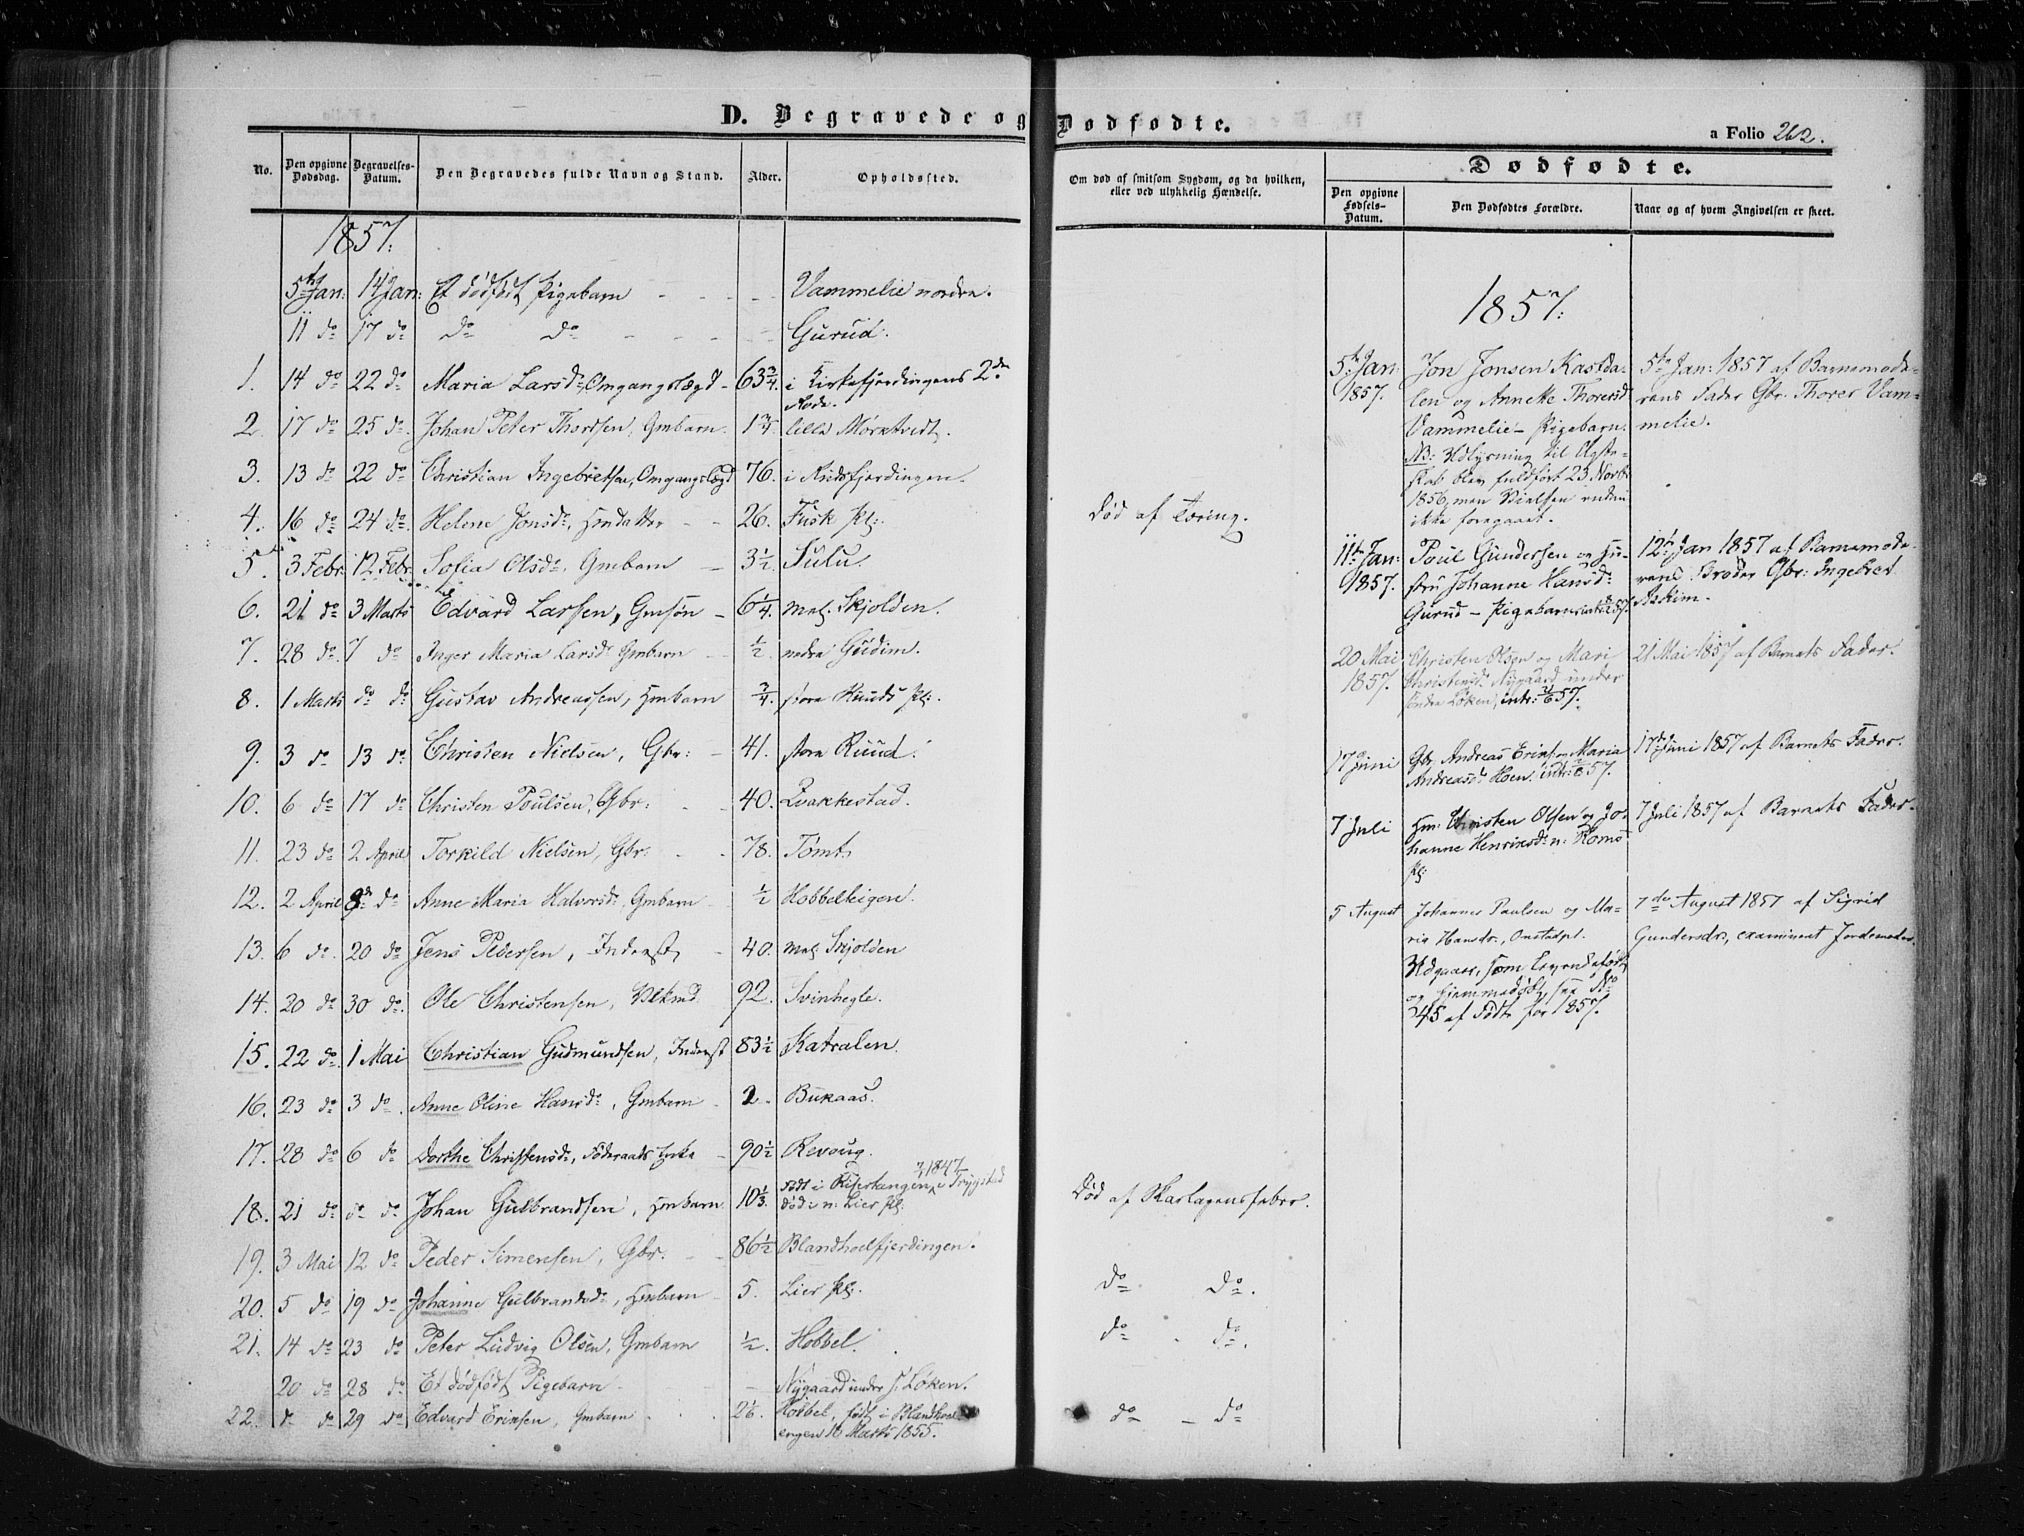 D. Begravede og Dødfødte.
a Folio 262.
No. Den opgivne Dødsdag. Begravelses-Datum. Den Begravedes fulde Navn og Stand. Alder. Opholdssted.
Om død af smitsom Sygdom, og da hvilken, eller ved ulykkelig Hændelse.
Dødfødte.
Den opgivne Fødsels-Datum. Den Dødfødtes Forældre. Naar og af hvem Angivelsen er skeet.
1857.
5te Jan: 14 Jan: Et dødfødt Pigebarn - - - - Vammelie nordre.
11 do 17 do do do - - - - Gurud.
1. 14 do 22 do Maria Larsdr Omgangslægd - 63 3/4. i Kirkefjerdingens 2den
Rode.
2. 17 do 25 do. Johan Peter Thordsen, Gmbarn 1 3/4. lille Morktvedt.
3. 13 do 22 do Christian Ingebretsen, Omgangslægd 76. i Ruds fjerdingen.
4. 16 do 24 do. Helene Jonsdr, Hmdatter - - 26. Fusk Pl: Død af Tæring.
5. 3 Febr. 12 Febr. Sofia Olsdr, Gmbarn - 3 1/2. Sulu.
6. 21 do 3 Marts Edvard Larssen, Gmsøn - 6 1/4. Skjolden.
7. 28 do. 7 do Inger Maria Larsdr Gmbarn - 1/2. nedre Gudim.
8. 1 Marts do do Gustav Andreassen, Hmbarn 3/4. store Ruuds Pl:.
9. 3 do 13 do Christen Nielsen, Gbr: - 41. store Ruud.
10. 6 do 17 do Christen Poulsen, Gbr: - - 40. Qvakkestad.
11. 23 do 2 April Torkild Nielsen, Gbr: - - 78. Tømt.
12. 2 April 8de do Anne Maria Halvorsdr, Gmbarn 1/2 Hobbelhigen.
13. 6 do. 20 do Jens Pedersen, Inderst, - 40. Skjolden
14. 20 do 30 do. Ole Christensen, 92. Svinhegle.
15. 22 do. 1 Mai Christian Gudmundsen, Inderst 83 1/2 Katralen.
16. 23 do 3 do. Anne Oline Hansdr, Gmbarn - 2. Bukaas.
17. 28 do 6 do Dorthe Christensdr, Føderaads Enke - 90 1/2 Revoug.
18. 21 do do do Johan Gulbrandsen, Hmbarn 10 1/3. født i 1847 i Trygstad
død i n: Lier Pl: Død af Skarlagensfeber.
19. 3 Mai 12 do Peder Simensen, Gbr. - - 86 1/2 Blandhoelfjerdingen.
20. 5 do 19 do Johanne Gulbrandsdr, Hmbarn - 5. Lier Pl:. do do.
21. 14 do 23 do Peter Ludvig Olsen, Gmbarn 1/2. Hobbel. do - do.
20 do 28 do Et dødfødt Pigebarn - - Nygaard under s: Løken.
22. do do 29 do Edvard Eriksen, Gmbarn - - Hobbel, født i Blandhoel-
engen Marts 1855. do - do
1857.
5te Jan: 1857. Jon Jonsen Kastda-
len og Annette Thorersdr
Vammelie - Pigebarn.
NB: Udlysning til Ægte-
skab blev fuldført 23 Novbr
1856, men Vielsen endnu
ikke foregaaet.
5te Jan: 1857 af Barnemode-
rens Fader Gbr. Thorer Vam-
melie.
11te Jan: 1857. Poul Gundersen og Hu-
stru Johanne Hansdr
Gurud - Pigebarn
12te Jan 1857 af Barnemode-
rens Broder Gbr: Ingebret
Askim.
20 Mai 1857. Christen Olsen og Mari
Christensdr Nygaard under
søndre Løken, intr: 57.
21 Mai 1857 af Barnets Fader.
17 Juni Gbr. Andreas Eriks. og Maria
Andreasdr Hoen. intr: 57.
17de Juni 1857 af Barnets Fader.
7 Juli Hm: Christen Olsen og Jo-
hanne Henriksdr n: Romo
Pl:
7 Juli 1857 af Barnets Fader.
5 August Johannes Paulsen og Ma-
ria Hansdr., Onstadpl.
Udgaaer, som levendefødt
og hjemmedøbt, see No
45 af Født for 1857.
7de August 1857 af Sigrid
Gundersdr., examineret Jordemoder.